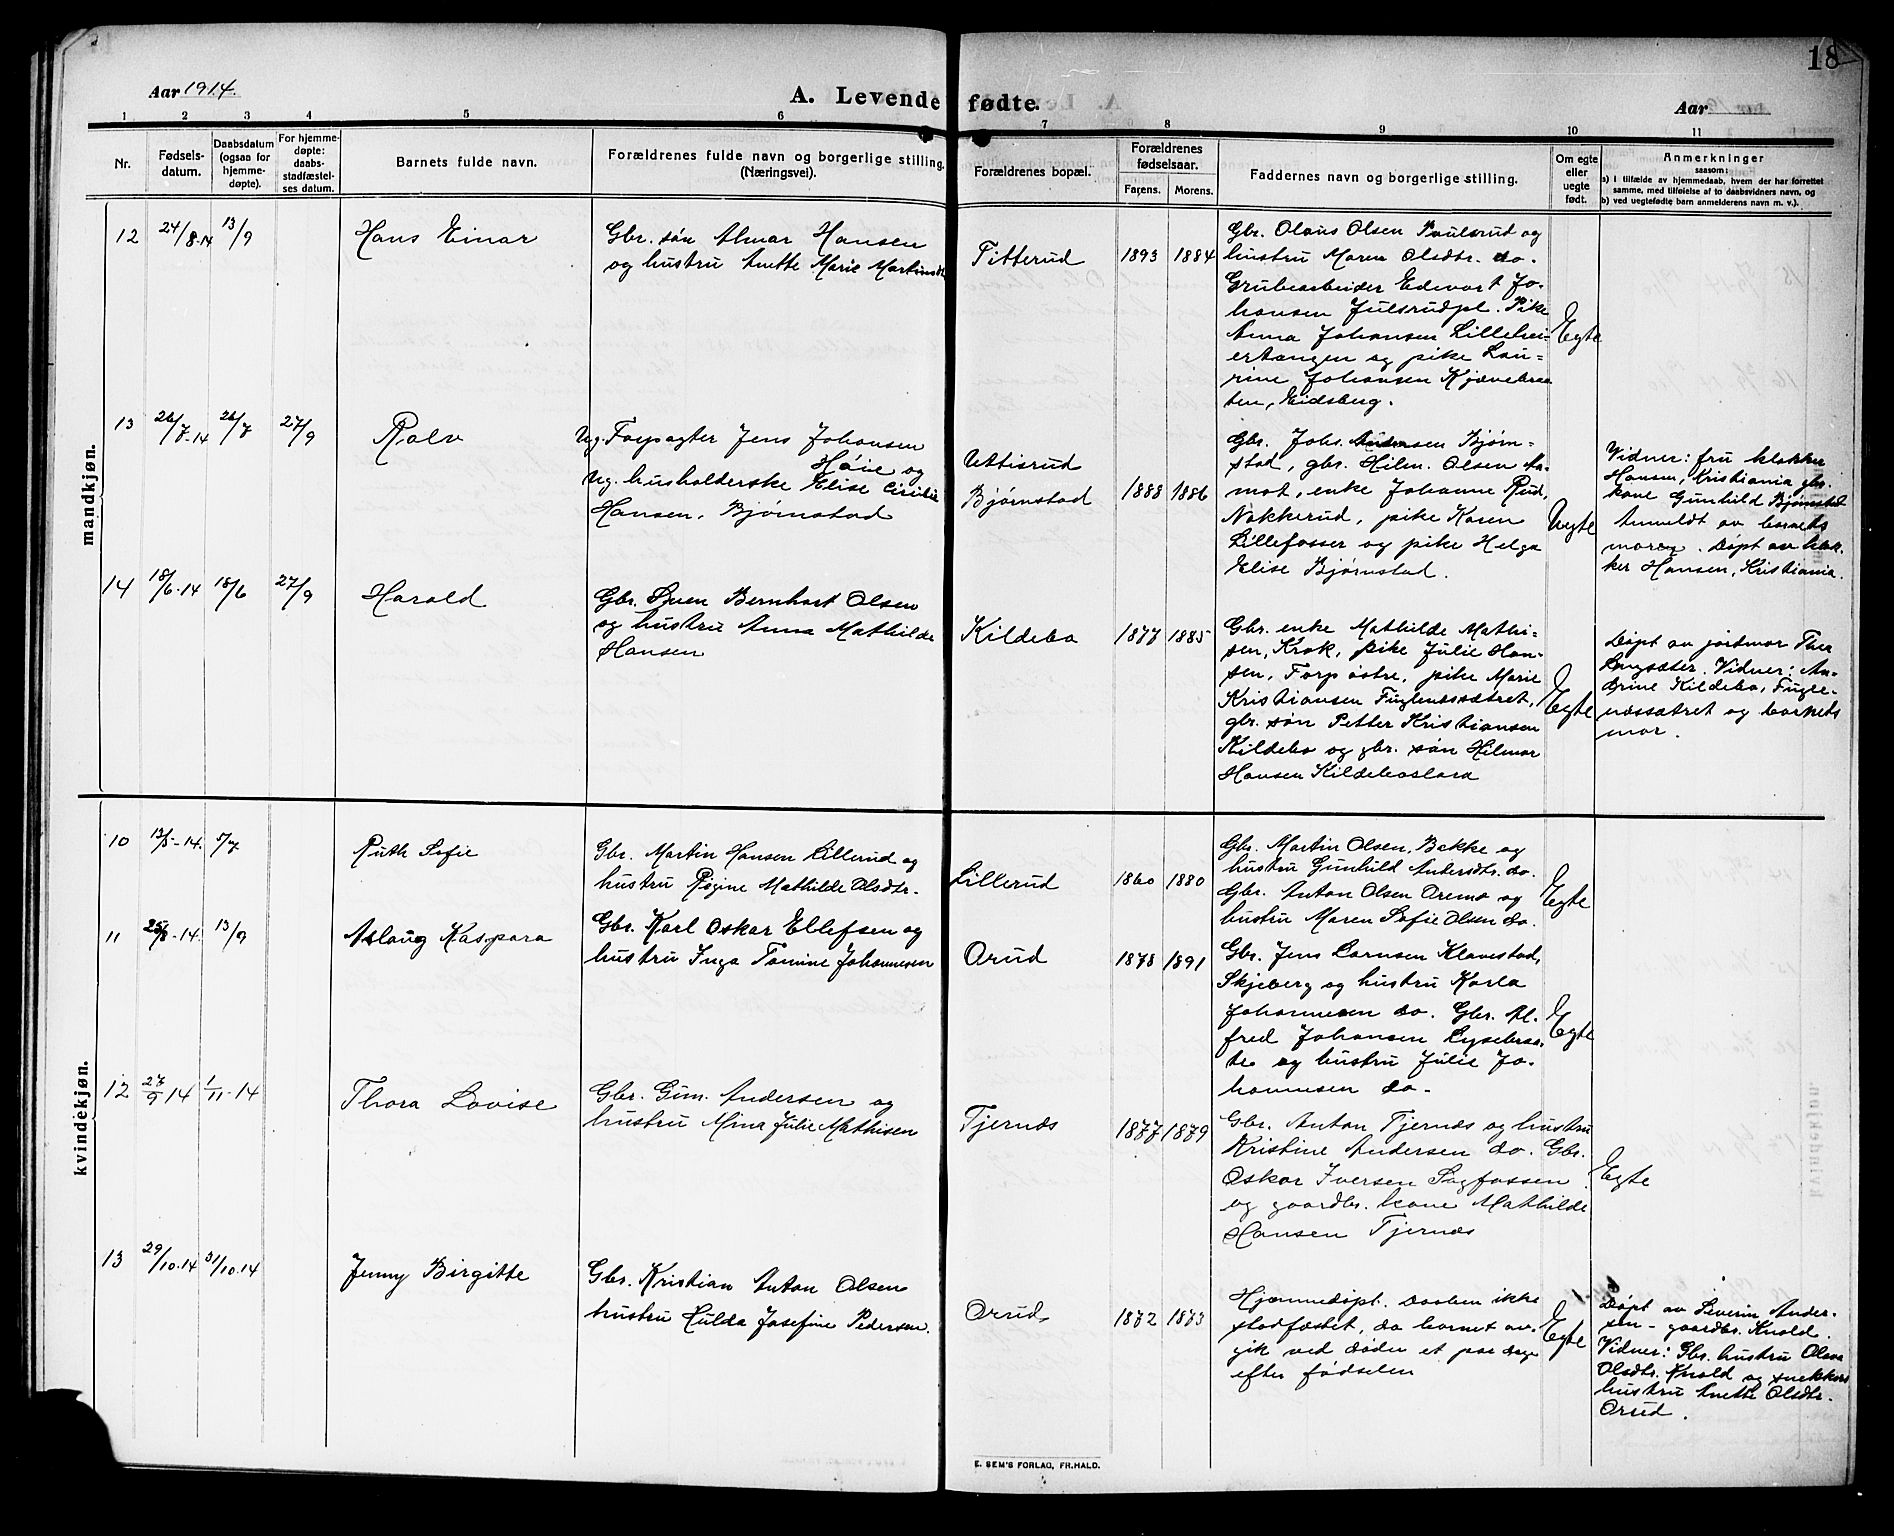 18
Aar 1914.
A. Levende fødte.
Aar
1 2 3 4 5 6 7 8 9 10 11
Nr.
Fødsels-
datum.
Daabsdatum
(ogsaa for
hjemme-
døpte).
For hjemme-
døpte:
daabs-
stadfæstel-
ses datum.
Barnets fulde navn.
Forældrenes fulde navn og borgerlige stilling.
(Næringsvei).
Forældrenes bopæl.
Forældrenes
fødselsaar.
Farens. Morens.
Faddernes navn og borgerlige stilling.
Om egte
eller
uegte
født.
Anmerkninger
saasom:
a) i tilfælde av hjemmedaab, hvem der har forrettet
samme, med tilføielse af to daabsvidners navn, og
b) ved uegtefødte barn anmelderens navn m. v.).
mandkjøn.
12
24/8-14
13/9
Hans Einar
Gbr. søn Almar Hansen
og hustru Anette Marie Martinsdtr
Titterud
1893 1884
Gbr. Olaus Olsen Paulsrud og
hustru Maren Olsdtr. do.
Grubearbeider Edvart Jo-
hansen Julsrudpl. Pike
Anna Johansen Lillehei-
ertangen og pike Lau-
rine Johansen Kjævebraa-
ten, Eidsberg.
Egte
13
26/7-14
26/7
27/9
Rolv
Ug. Forpagter Jens Johansen
Høie og
Ug. husholderske Elise Cicilie
Hansen, Bjørnstad
Uttisrud
Bjørnstad
1888 1886
Gbr. Johs. Andersen Bjørn-
stad, gbr. Hilm. Olsen Aa-
mot, enke Johanne Rud,
Nakkerud, pike Karen
Lillefosser og pike Helga
Elise Bjørnstad.
Uegte
Vidner: fru klokker
Hansen, Kristiania gbr.
kone Gunhild Bjørnstad
Anmeldt av barnets
moren. Døpt av klok-
ker Hansen, Kristiania.
14
18/6-14
18/6
27/9
Harald
Gbr. Sven Bernhart Olsen
og hustru Anna Mathilde
Hansen
Kildebo
1877 1885
Gbr. enke Mathilde Mathi-
sen, Krok, pike Julie Han-
sen, Torp østre, pike Marie
Kristiansen Fuglenessætret,
gbr. søn Petter Kristiansen
Kildebo og gbr. søn Hilmar
Hansen Kildeboslora
Egte
Døpt av jordmor Thea
Langsæter. Vidner: An-
drine Kildebo, Fugle-
nessætret og barnets
mor.
kvindekjøn.
10
13/5-14.
5/7
Ruth Sofie
Gbr. Martin Hansen Lillerud og
hustru Regine Mathilde Olsdtr.
Lillerud
1860 1880
Gbr. Martin Olsen, Bekke og
hustru Gunhild Andersdtr. do.
Gbr. Anton Olsen Oremo og
hustru Maren Sofie Olsen do.
Egte
11
25/8-14.
13/9
Aslaug Kaspara
Gbr. Karl Oskar Ellefsen og
hustru Inga Tomine Johannesen
Orud
1878 1891
Gbr. Jens Larnsen Klavestad,
Skjeberg og hustru Karla
Johannesen do. Gbr. Al-
fred Johansen Lysebraa-
te og hustru Julie Jo-
hannesen do.
Egte
12
27/9 14
1/11-14
Thora Lovise
Gbr. Gum. Andersen og
hustru Mina Julie Mathisen
Tjernæs
1877 1879
Gbr. Anton Tjernæs og hustru
Kristine Andersen do. Gbr.
Oskar Iversen Sagfossen
og gaardbr. kone Mathilde
Hansen Tjernæs
Egte
13
29/10-14
31/10-14
Jenny Birgitte
Gbr. Kristian Anton Olsen
hustru Hulda Josefine Pedersen.
Orud
1872 1873
Hjemmedøpt. Daaben ikke
stadfæstet, da barnet av-
gik ved døden et par dage
efter fødselen
Egte
Døpt av Severin Ander-
sen - gaardbr. Knold.
Vidner: Gbr. hustru Olava
Olsdtr. Knold og snekkers
hustru Anette Olsdtr.
Orud.
E. SEM'S FORLAG, FR.HALD.